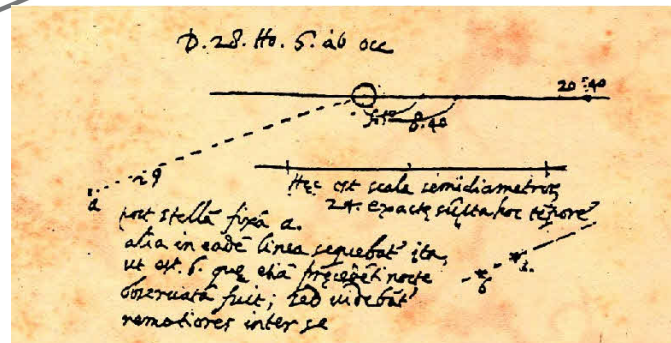 D. 28. Ho. 5. ab occ
20 : 40
8.40
29
a
Hec est scala semidiametros
24. exacte
post stellā fixā a.
alia in eadē linea sequebat' ita,
ut est. b. que etiā precedēti nocte
observata fuit; sed videbāt'
remotiores inter se
b
a.